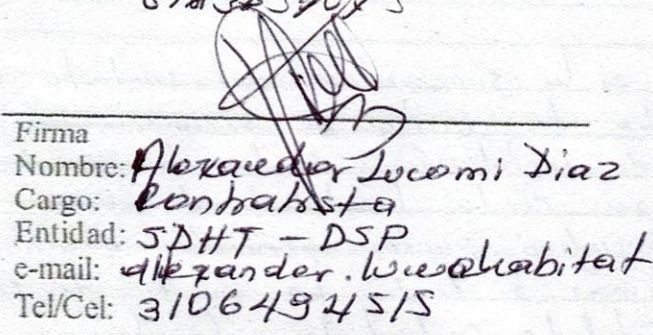 Firma
Nombre: Alexander Lucomi Diaz
Cargo: Contratista
Entidad: SDHT - DSP
e-mail: alexander.
Tel/Cel: 3106494515